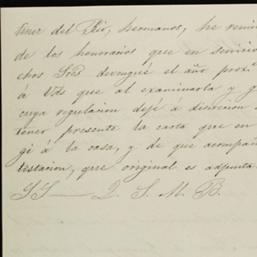 tiner del Rio, hermanos, he remi
de los honorarios que en servicio
chos Sres devengué el año proxº
á Vds que al examinarla y
cuya regulacion dejé á discrecion
tener presente la carta que en
gi á la casa, y de que acompañ
testacion, que original es adjunta
SS — Q. S. M. B.